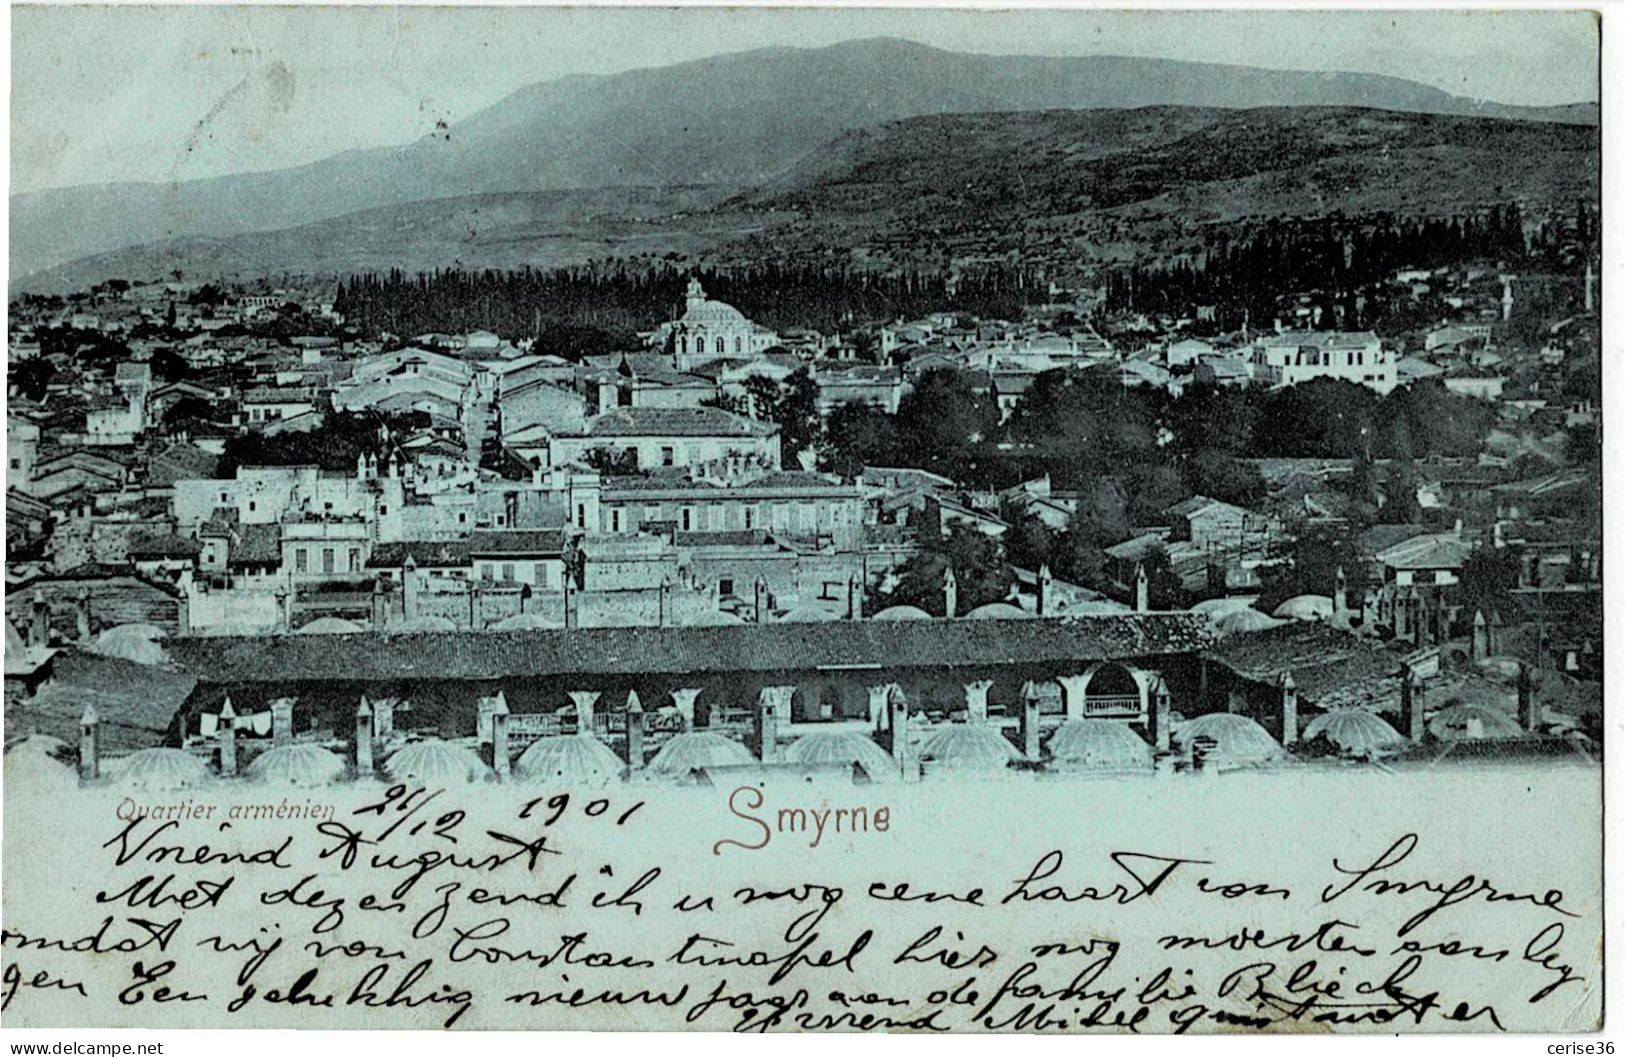 Quartier arménien 21/12 1901 Smyrne
Vriend August
Met dezen zend ik u nog eene kaart van Smyrne
omdat wij van Constantinopel hier nog moesten aanleg
gen Een gelukkig nieuw jaar aan de familie Blieck
Uw vriend Michel
delcampe.net
cerise36